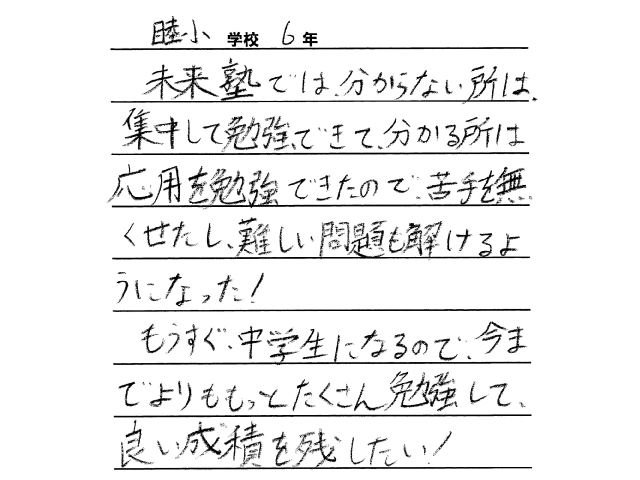 睦小 学校 6年
未来塾では、分からない所は、
集中して勉強、できて、分かる所は
応用を勉強できたので、苦手を無
くせたし、難しい問題も解けるよ
うになった!
もうすぐ、中学生になるので、今ま
でよりももっとたくさん勉強して、
良い成積を残したい!